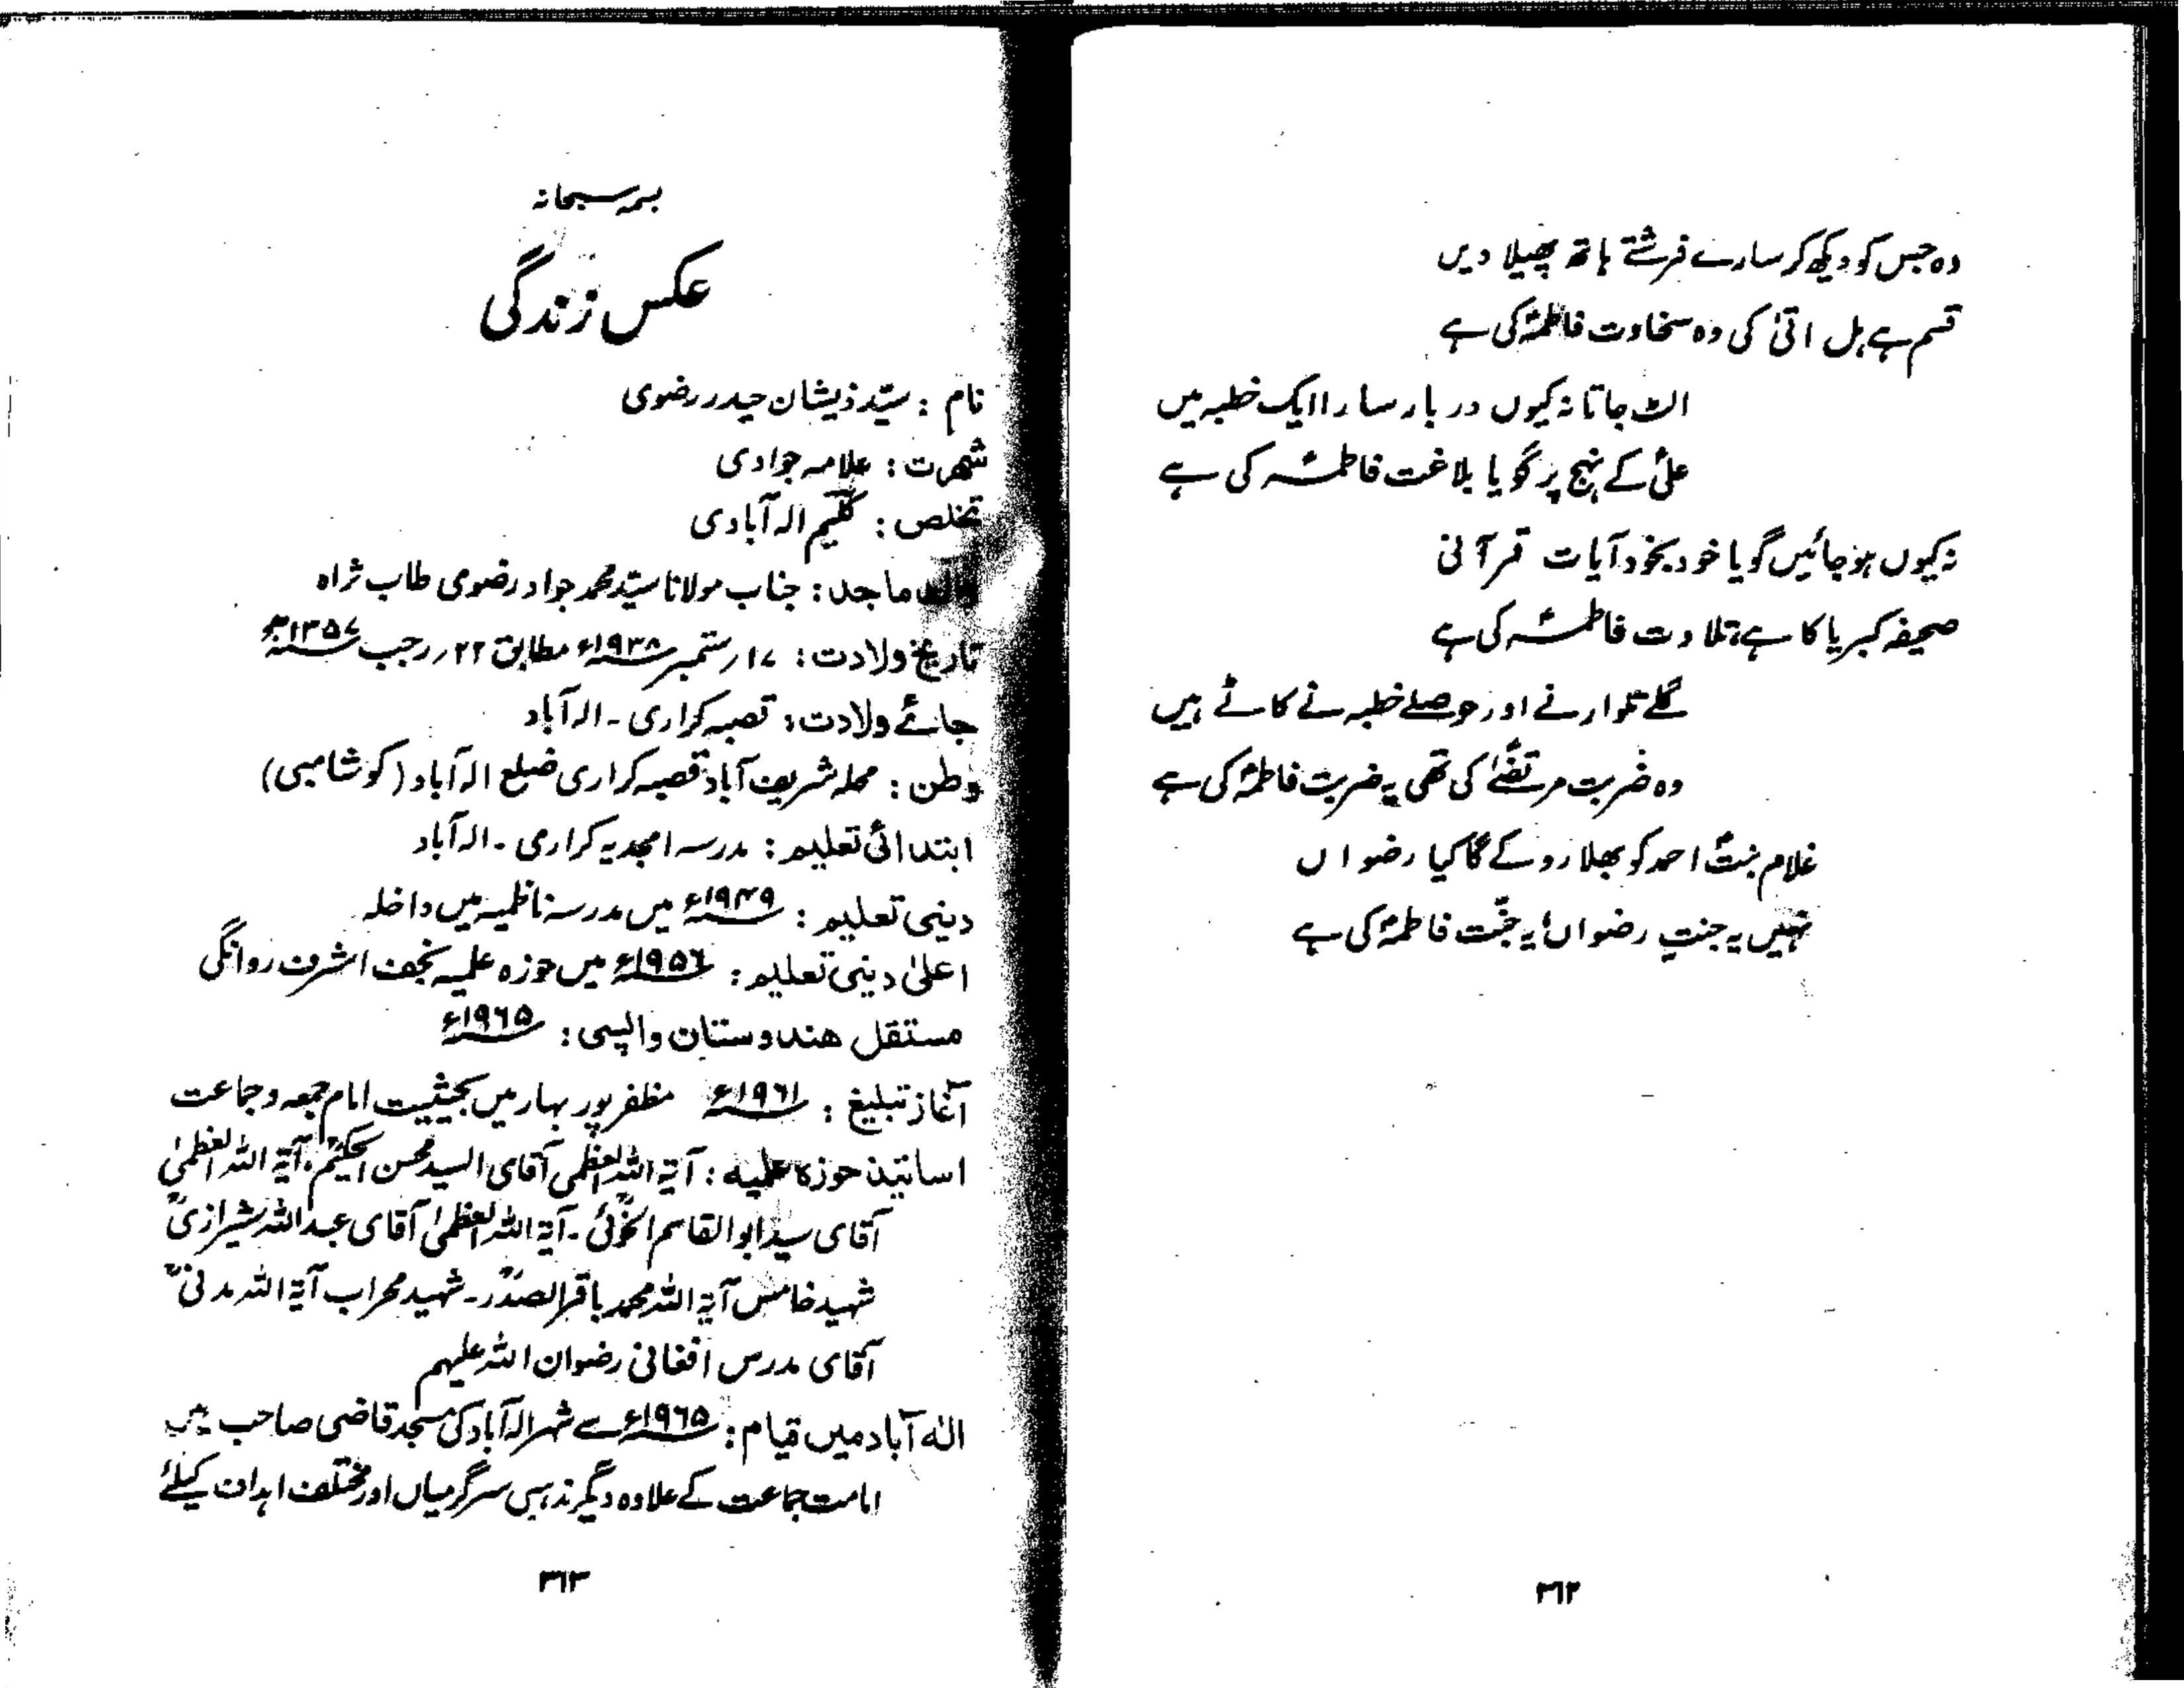 وہ جس کو دیکھ کر سارے فرشتے ہاتھ پھیلا دیں
قسم ہے ہل اتیٰ کی وہ سخاوت فاطمہؑ کی ہے
الٹ جاتا نہ کیوں دربار سارا ایک خطبہ میں
علیؑ کے نہج پر گویا بلاغت فاطمہؑ کی ہے
نہ کیوں ہو جائیں گویا خود بخود آیات قرآنی
صحیفہ کبریا کا ہے تلاوت فاطمہؑ کی ہے
گلے تلوار نے اور حوصلے خطبہ نے کاٹے ہیں
وہ ضربت مرتضیٰؑ کی تھی یہ ضربت فاطمہؑ کی ہے
غلام بنتؑ احمد کو بھلا روکے گا کیا رضواں
نہیں یہ جنتِ رضواں، یہ جنّت فاطمہؑ کی ہے
۳۶۲
بسمہ سبحانہ
عکس زندگی
نام : سیّد ذیشان حیدر رضوی
شہرت : علامہ جوادی
تخلص : کلیم الہ آبادی
والد ماجد : جناب مولانا سیّد محمد جواد رضوی طاب ثراہ
تاریخ ولادت : ۱۷؍ ستمبر ۱۹۳۸ء مطابق ۲۲؍ رجب ۱۳۵۷ھ
جائے ولادت : قصبہ کراری ۔ الہ آباد
وطن : محلہ شریف آباد قصبہ کراری ضلع الہ آباد (کوشامبی)
ابتدائی تعلیم : مدرسہ امجدیہ کراری ۔ الہ آباد
دینی تعلیم : ۱۹۴۹ء میں مدرسہ ناظمیہ میں داخلہ
اعلیٰ دینی تعلیم : ۱۹۵۶ء میں حوزہ علمیہ نجف اشرف روانگی
مستقل هندوستان واپسی : ۱۹۶۵ء
آغاز تبلیغ : ۱۹۶۱ء مظفر پور بہار میں بحیثیت امام جمعہ و جماعت
اساتید حوزہ علمیہ : آیۃ اللہ العظمی آقای السید محسن الحکیمؒ، آیۃ اللہ العظمیٰ
آقای سید ابوالقاسم الخوئیؒ ۔ آیۃ اللہ العظمیٰ آقای عبداللہ شیرازیؒ
شہید خامس آیۃ اللہ محمد باقر الصدرؒ ۔ شہید محراب آیۃ اللہ مدنیؒ
آقای مدرس افغانی رضوان اللہ علیہم
الہ آباد میں قیام : ۱۹۶۵ء سے شہر الہ آباد کی مسجد قاضی صاحب میں
امامت جماعت کے علاوہ دیگر مذہبی سرگرمیاں اور مختلف اہداف کیلئے
۳۶۳